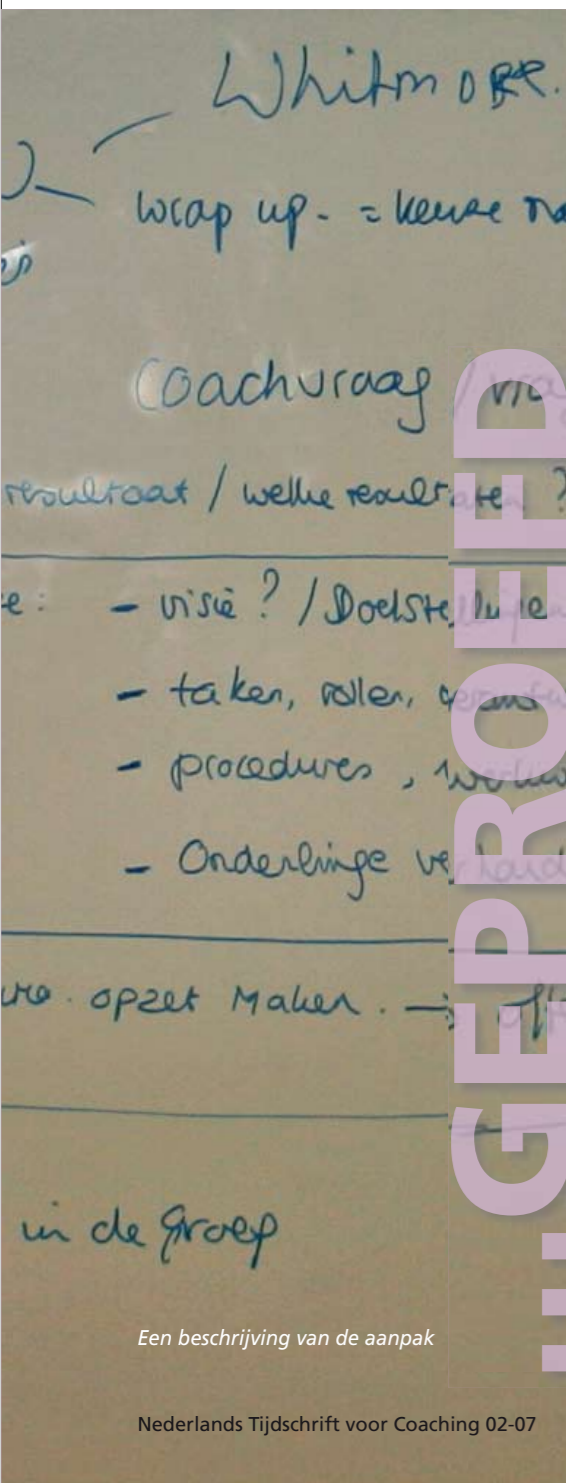 Whitmore.
wrap up. = keuze
Coachvraag /
resultaat / welke resultaten ?
e: - visie ? / Doelstellingen
- taken, rollen,
- procedures ,
- Onderlinge
opzet Maken . →
in de Groep
Een beschrijving van de aanpak
Nederlands Tijdschrift voor Coaching 02-07
...GEPROEFD